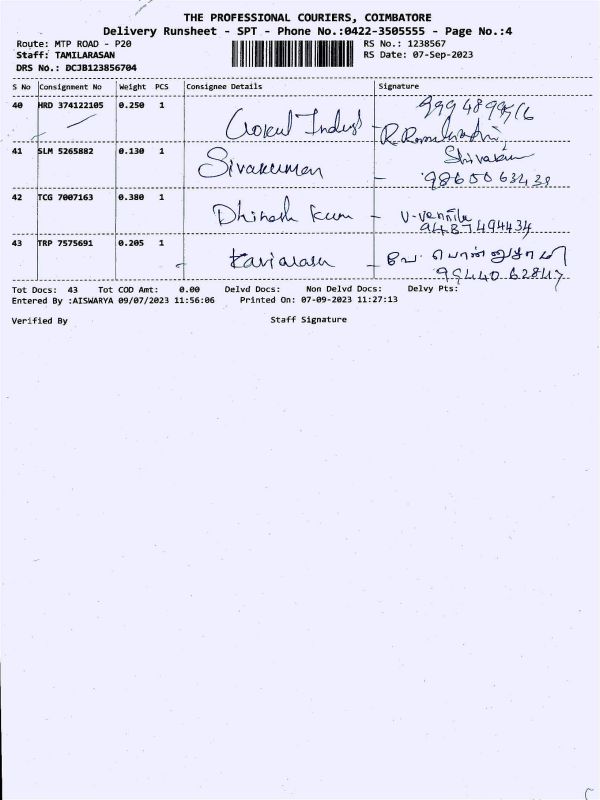 THE PROFESSIONAL COURIERS, COIMBATORE
Delivery Runsheet - SPT - Phone No.:0422-3505555 - Page No.:4
Route: MTP ROAD - P20 RS No.: 1238567
Staff: TAMILARASAN RS Date: 07-Sep-2023
DRS No.: DCJB123856704
S No Consignment No Weight PCS Consignee Details Signature
40 HRD 374122105 0.250 1 Gokul
41 SLM 5265882 0.130 1 Sivakumar Shivakum
9865063439
42 TCG 7007163 0.380 1 Dhinesh Kum - V-Vennila
9487494434
43 TRP 7575691 0.205 1 Kaviarasu -
9944062847
Tot Docs: 43 Tot COD Amt: 0.00 Delvd Docs: Non Delvd Docs: Delvy Pts:
Entered By :AISWARYA 09/07/2023 11:56:06 Printed On: 07-09-2023 11:27:13
Verified By Staff Signature